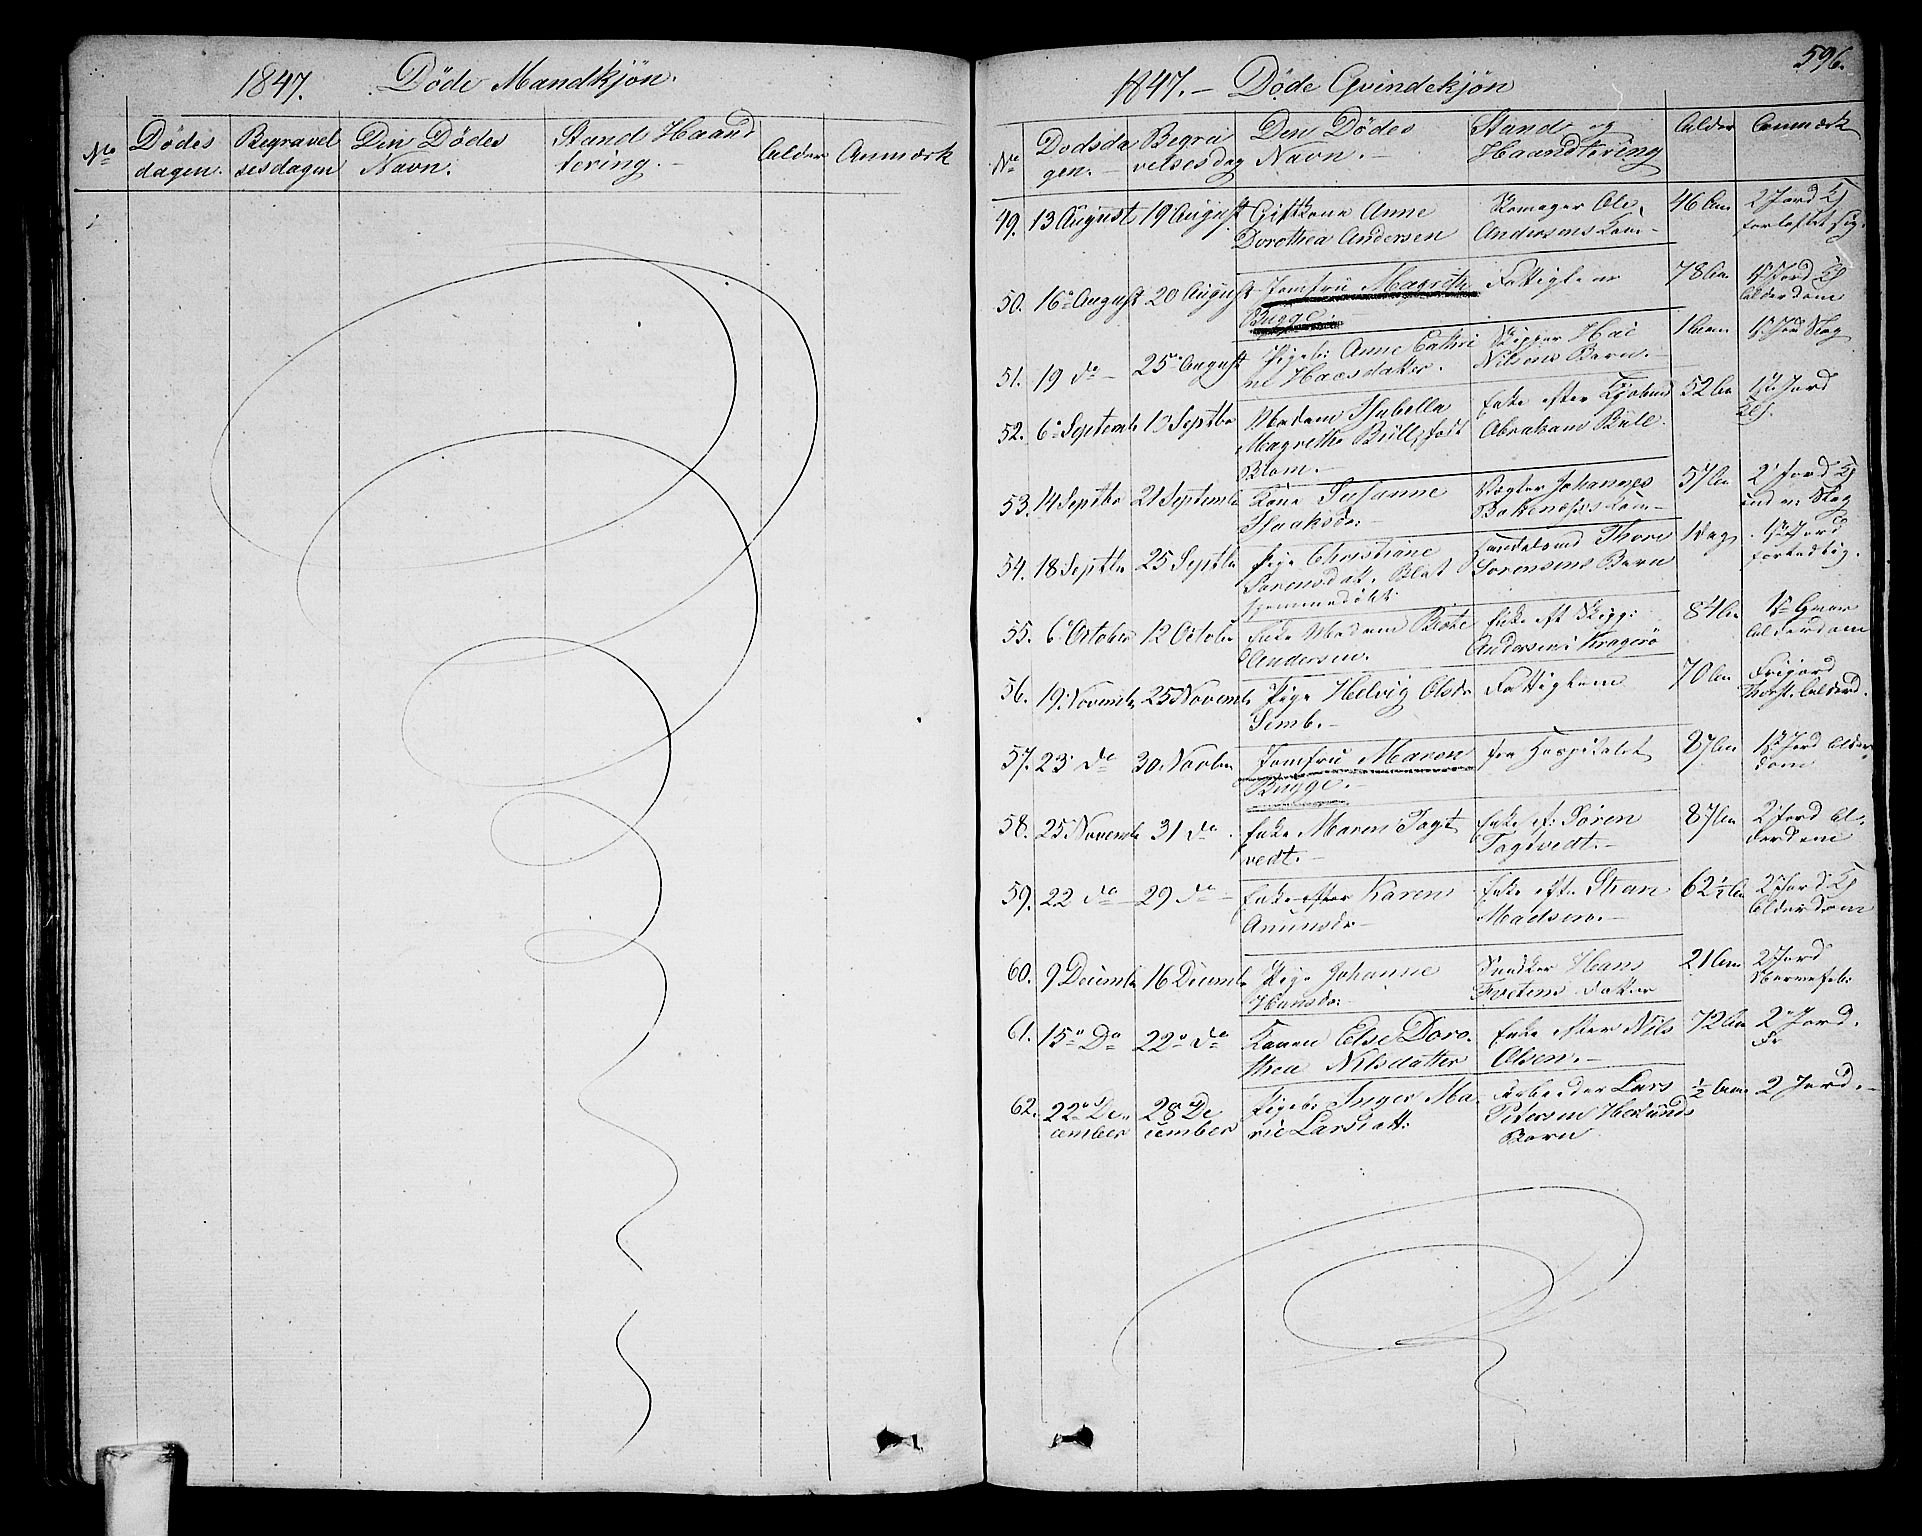 1847. Døde Mandkjøn.
No
Dødes
dagen.
Begravel
sesdagen
Den Dødes
Navn.
Stand Haand
tering.
Alder
Anmærk
596.
1847. – Døde Qvindekjøn
No
Dødsda
gen. –
Begra
velsesdag
Den Dødes
Navn. –
Stand og
Haandtering
Alder
Anmærk
49. 13 August 19 August Giftkone Anne
Dorothea Andersen
Ole
Andersens Kone –
46 Aar
2 Jord
50. 16 August 20 August Jomfru Magrethe
Bugge.
Fattiglem
78 Aar
Jord
Alderdom
51. 19 do – 25 August Pigeb: Anne Cathri
ne Haaesdatter.
Skipper Hae
Nilsens Barn. –
1 Aar
Jord Slag
52. 6 Septemb 13 Septbr Madam Isabella
Magrethe Bull, født
Blom. –
Enke efter
Abraham Bull.
52 Aar
Jord
53. 14 Septbr 21 Septemb Kone Susanne
Isaaksdr –
Vægter Johannes
Kone –
57 Aar
2 Jord
Slag
54. 18 Septbr 25 Septbr Pige Christiane
Sørensdat. Blet
hjemmedøbt
Thore
Sørensens Barn
1 Dag
Jord
55. 6 October 12 Octobr Enke Madam Birte
Andersen.
Enke eft Skipp:
Andersen i Kragerø
84 Aar
Alderdom
56. 19 Novemb 25 Novemb Pige Helvig Olsdr
Semb. –
Fattiglem
70 Aar
Frijord
Alderd.
57. 23 do 30 Novbr Jomfru Maren
Bugge. –
fra Hospitalet
87 Aar
Jord Alder
dom
58. 25 Novemb 31 do. Enke Maren Fogt
vedt. –
Enke ef: Søren
Fogtvedt. –
87 Aar
2 Jord Al-
derdom
59. 22 do – 29 do – Enke efter Karen
Amunsdr
Enke efte
Madsen. –
62½ Aar
2 Jord
Alderdom
60. 9 Decemb 16 Decemb Pige Johanne
Hansdr –
Snedker Hans
Tvetens Datter
21 Aar
2 Jord
Nervefeb:
61. 15 Do 22 do Konen Else Doro-
thea Nilsdatter
Enke efter Nils
Olsen. –
72 Aar
2 Jord.
62. 22 De-
cember
28 De
cember
Pigeb: Inger Ma-
rie Larsdatt:
Arbeider Lars
Petersen
Barn
½ Aar
2 Jord. –